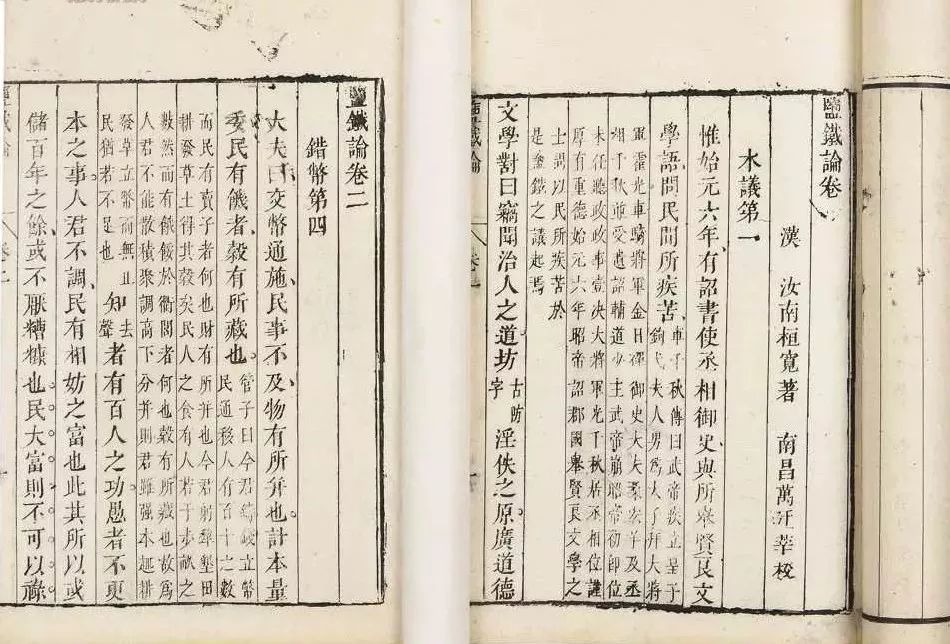 鹽鐵論卷
漢 汝南桓寬著 南昌萬 莘校
本議第一
惟始元六年有詔書使丞相御史與所舉賢良文
學語問民間所疾苦 車千秋傳曰武帝疾立皇子
鉤弋夫人男為太子拜大將
軍霍光車騎將軍金日磾御史大夫桑弘羊及丞
相千秋並受遺詔輔道少主武帝崩昭帝初即位
未任聽政政事壹決大將軍光千秋居丞相位謹
厚有重德始元六年昭帝詔郡國舉賢良文學之
士問以民所疾苦於
是鹽鐵之議起焉
文學對曰竊聞治人之道坊古防字淫佚之原廣道德
鹽鐵論 卷
鹽鐵論卷二
錯幣第四
大夫曰交幣通施民事不及物有所并也計本量
委民有饑者穀有所藏也 管子曰今君鑄錢立幣
民通移人有百十之數
而民有賣子者何也財有所并也今君躬犁墾田
耕發草土得其穀矣民人之食有人若干步畝之
數然而有餓餒於衢閭者何也穀有所藏也故為
人君不能散積聚調高下分并財君雖强本趣耕
發草立幣而無止
民猶若不足也 知去聲者有百人之功愚者不更
本之事人君不調民有相妨之富也此其所以或
儲百年之餘或不厭糟糠也民大富則不可以祿
鹽鐵論 卷二